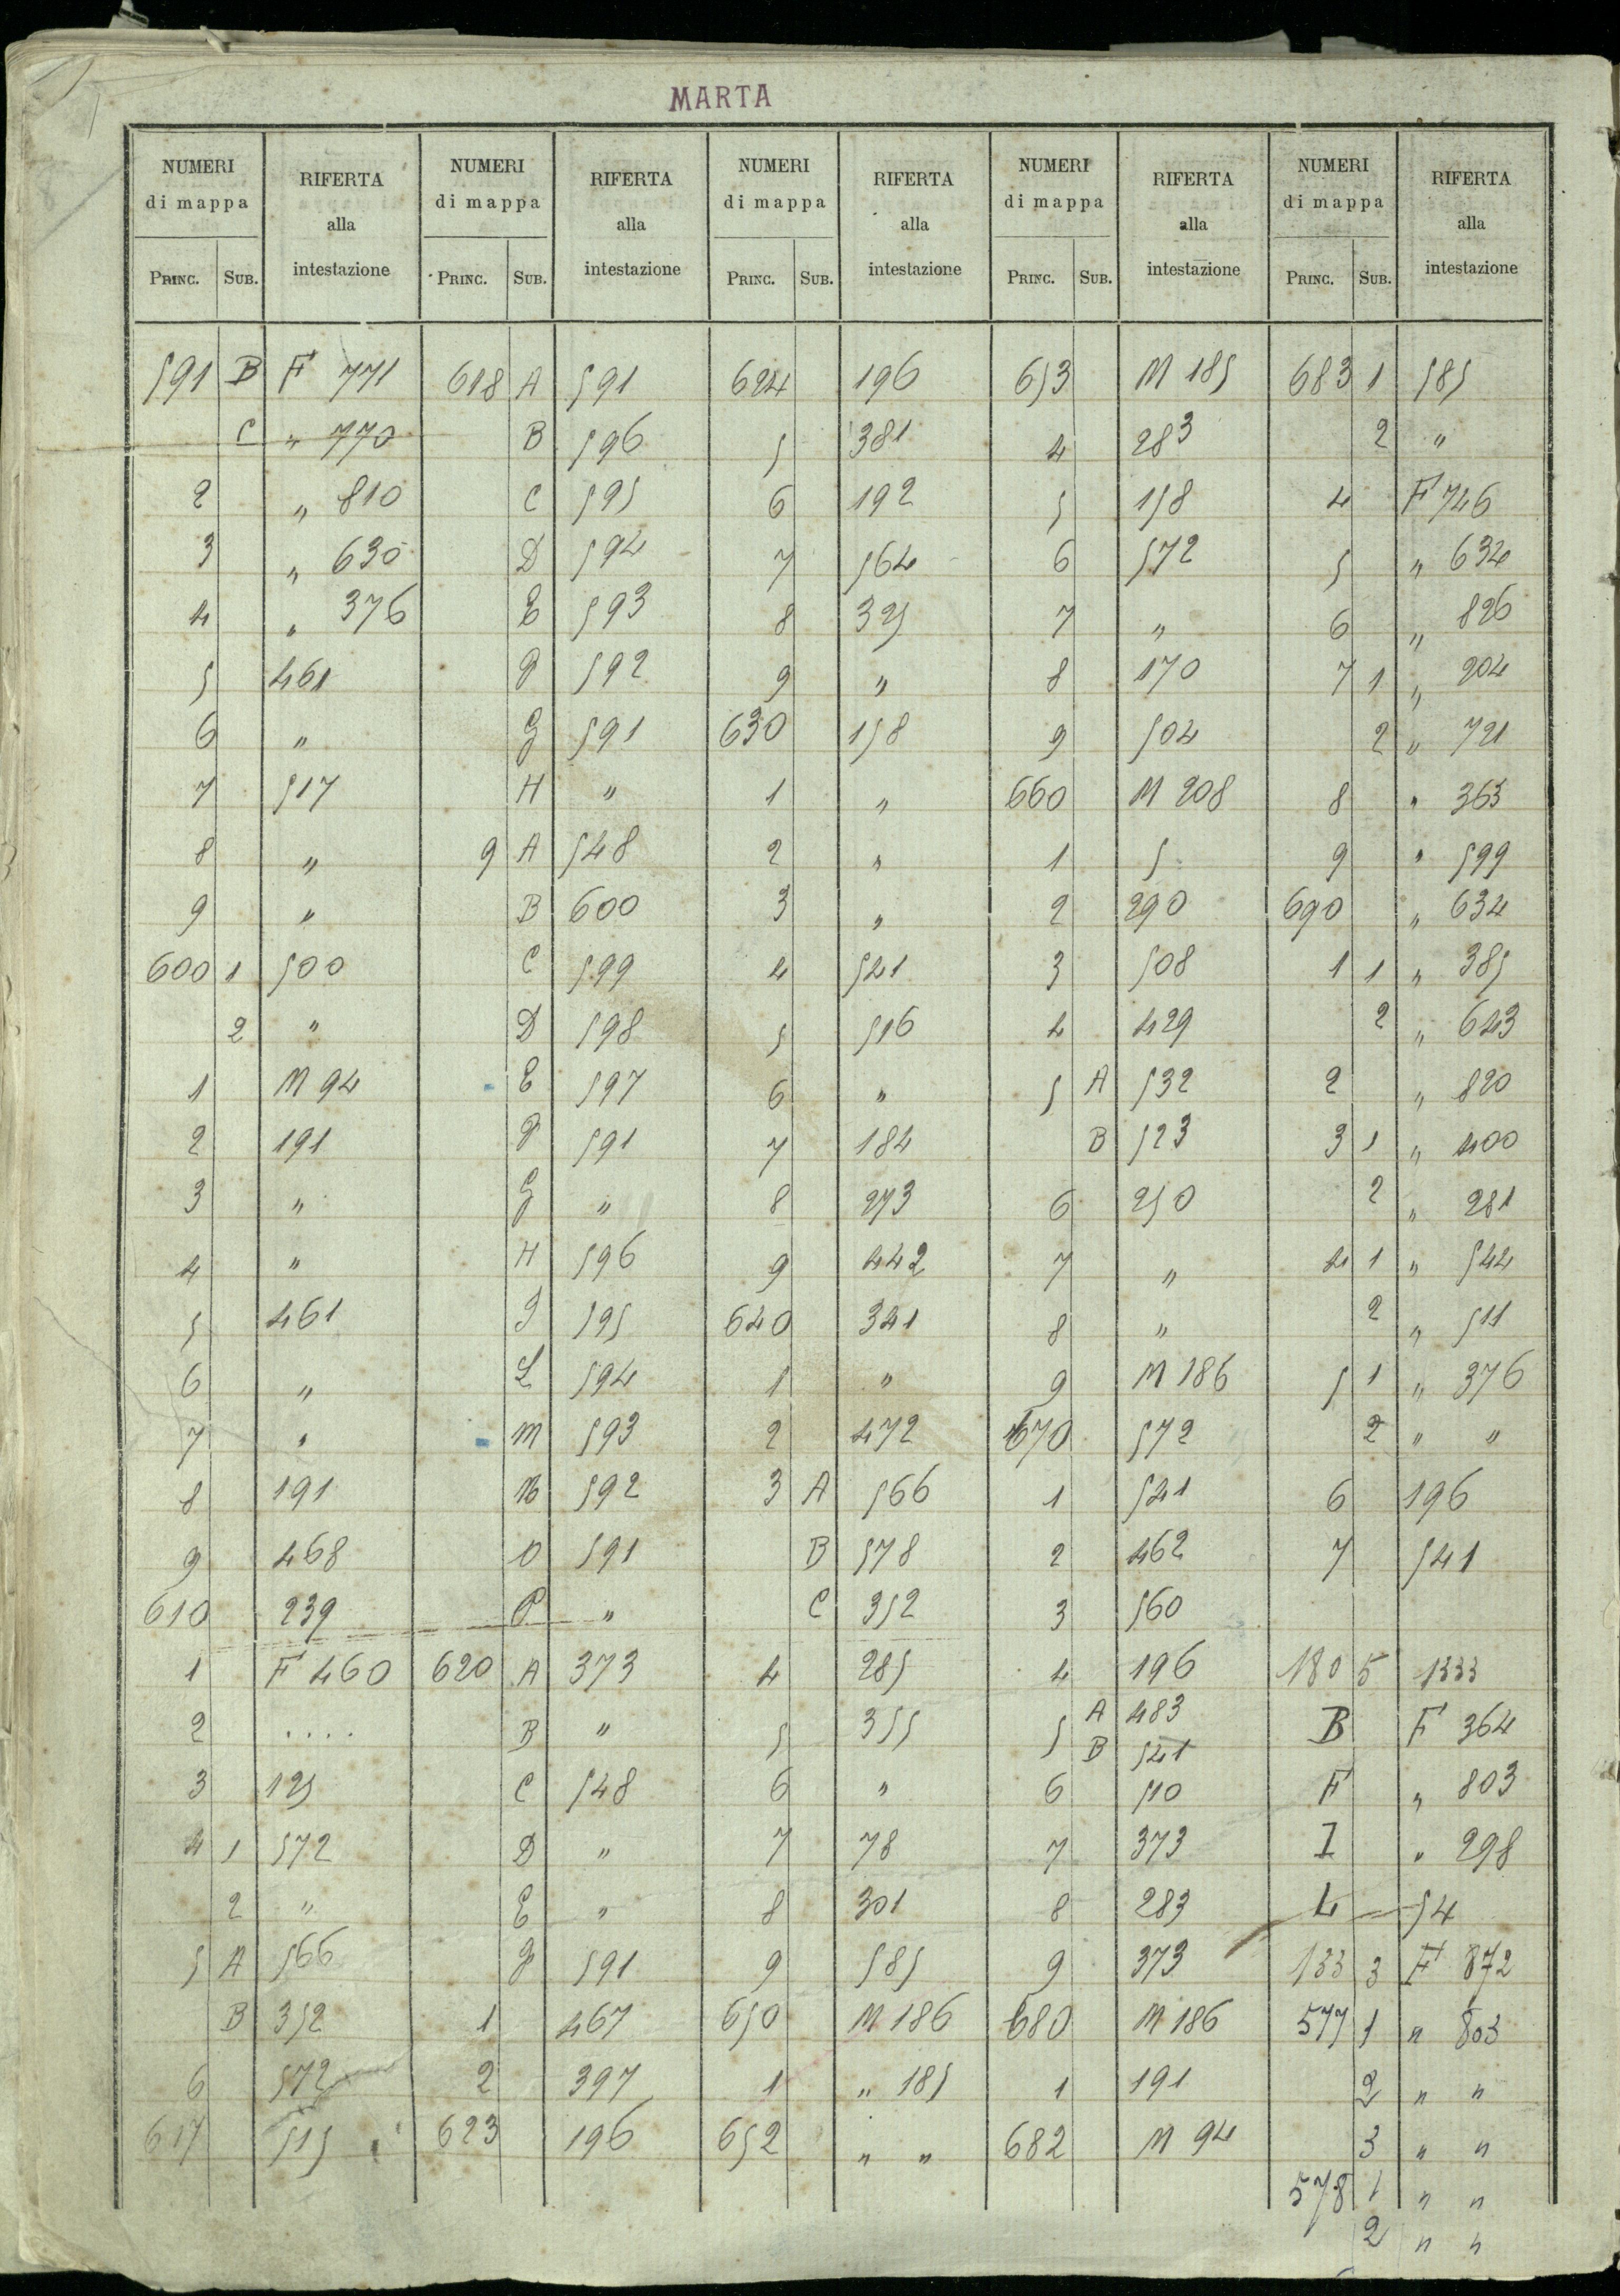 MARTA
NUMERI di mappa RIFERTA alla intestazione
PRINC. SUB.
591 B F 771
C " 770
2 " 810
3 " 630
4 " 376
5 461
6 "
7 517
8 "
9 "
600 1 500
2 "
1 M 94
2 191
3 "
4 "
5 461
6 "
7 "
8 191
9 468
610 239
1 F 460
2 ....
3 125
4 1 572
2 "
5 A 566
B 352
6 572
617 515
NUMERI di mappa RIFERTA alla intestazione
PRINC. SUB.
618 A 591
B 596
C 595
D 594
E 593
F 592
G 591
H "
9 A 548
B 600
C 599
D 598
E 597
F 591
G "
H 596
I 595
L 594
M 593
N 592
O 591
P "
620 A 373
B "
C 548
D "
E "
F 591
1 467
2 397
623 196
NUMERI di mappa RIFERTA alla intestazione
PRINC. SUB.
624 196
5 381
6 192
7 564
8 325
9 "
630 158
1 "
2 "
3 "
4 541
5 516
6 "
7 184
8 273
9 442
640 341
1 "
2 472
3 A 566
B 578
C 352
4 285
5 355
6 "
7 78
8 301
9 585
650 M 186
1 " 185
652 " "
NUMERI di mappa RIFERTA alla intestazione
PRINC. SUB.
653 M 185
4 283
5 158
6 572
7 "
8 170
9 504
660 M 208
1 5
2 290
3 508
4 429
5 A 532
B 523
6 250
7 "
8 "
9 M 186
670 572
1 541
2 462
3 560
4 196
5 A 483
B 541
6 510
7 373
8 283
9 373
680 M 186
1 191
682 M 94
NUMERI di mappa RIFERTA alla intestazione
PRINC. SUB.
683 1 585
2 "
4 F 746
5 " 634
6 " 826
7 1 " 204
2 " 721
8 " 363
9 " 599
690 " 634
1 1 " 385
2 " 643
2 " 820
3 1 " 400
2 " 281
4 1 " 544
2 " 511
5 1 " 376
2 " "
6 196
7 541
180 5 1333
B F 364
F " 803
I " 298
L 54
133 3 F 872
577 1 " 803
2 " "
3 " "
578 1 " "
2 " "